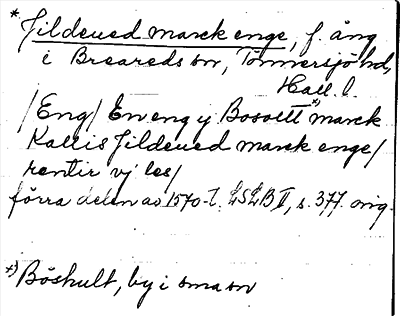 * Jildeued marck enge, f. äng
i Breareds sn, Tönnersjö hd,
Hall. l.
/Eng/ En eng y Bosoltt +) marck
Kallis Jildeued marck enge/
rentir vj les/
förra delen av 1570-t. LSLB II, s. 377. orig.
+) Böshult, by i sma sn